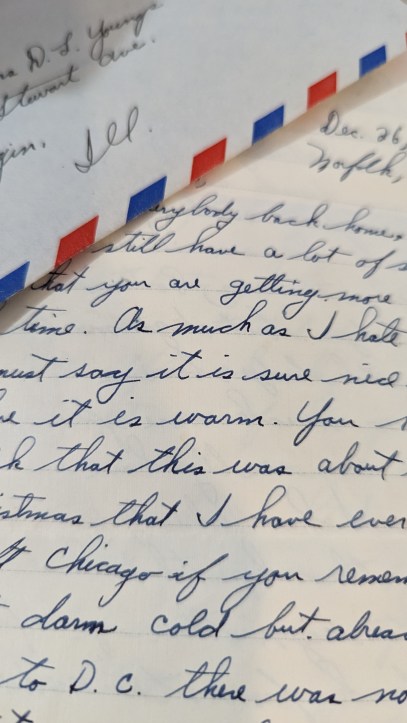 D. L. Youngs
Stewart Ave.
gin, Ill.
Dec. 26,
Norfolk,
erybody back home,
still have a lot of s
that you are getting more
time. As much as I hate
must say it is sure nice
e it is warm. You
k that this was about
istmas that I have ever
ft Chicago if you remem
darm cold but. alrea
to D. C. there was no